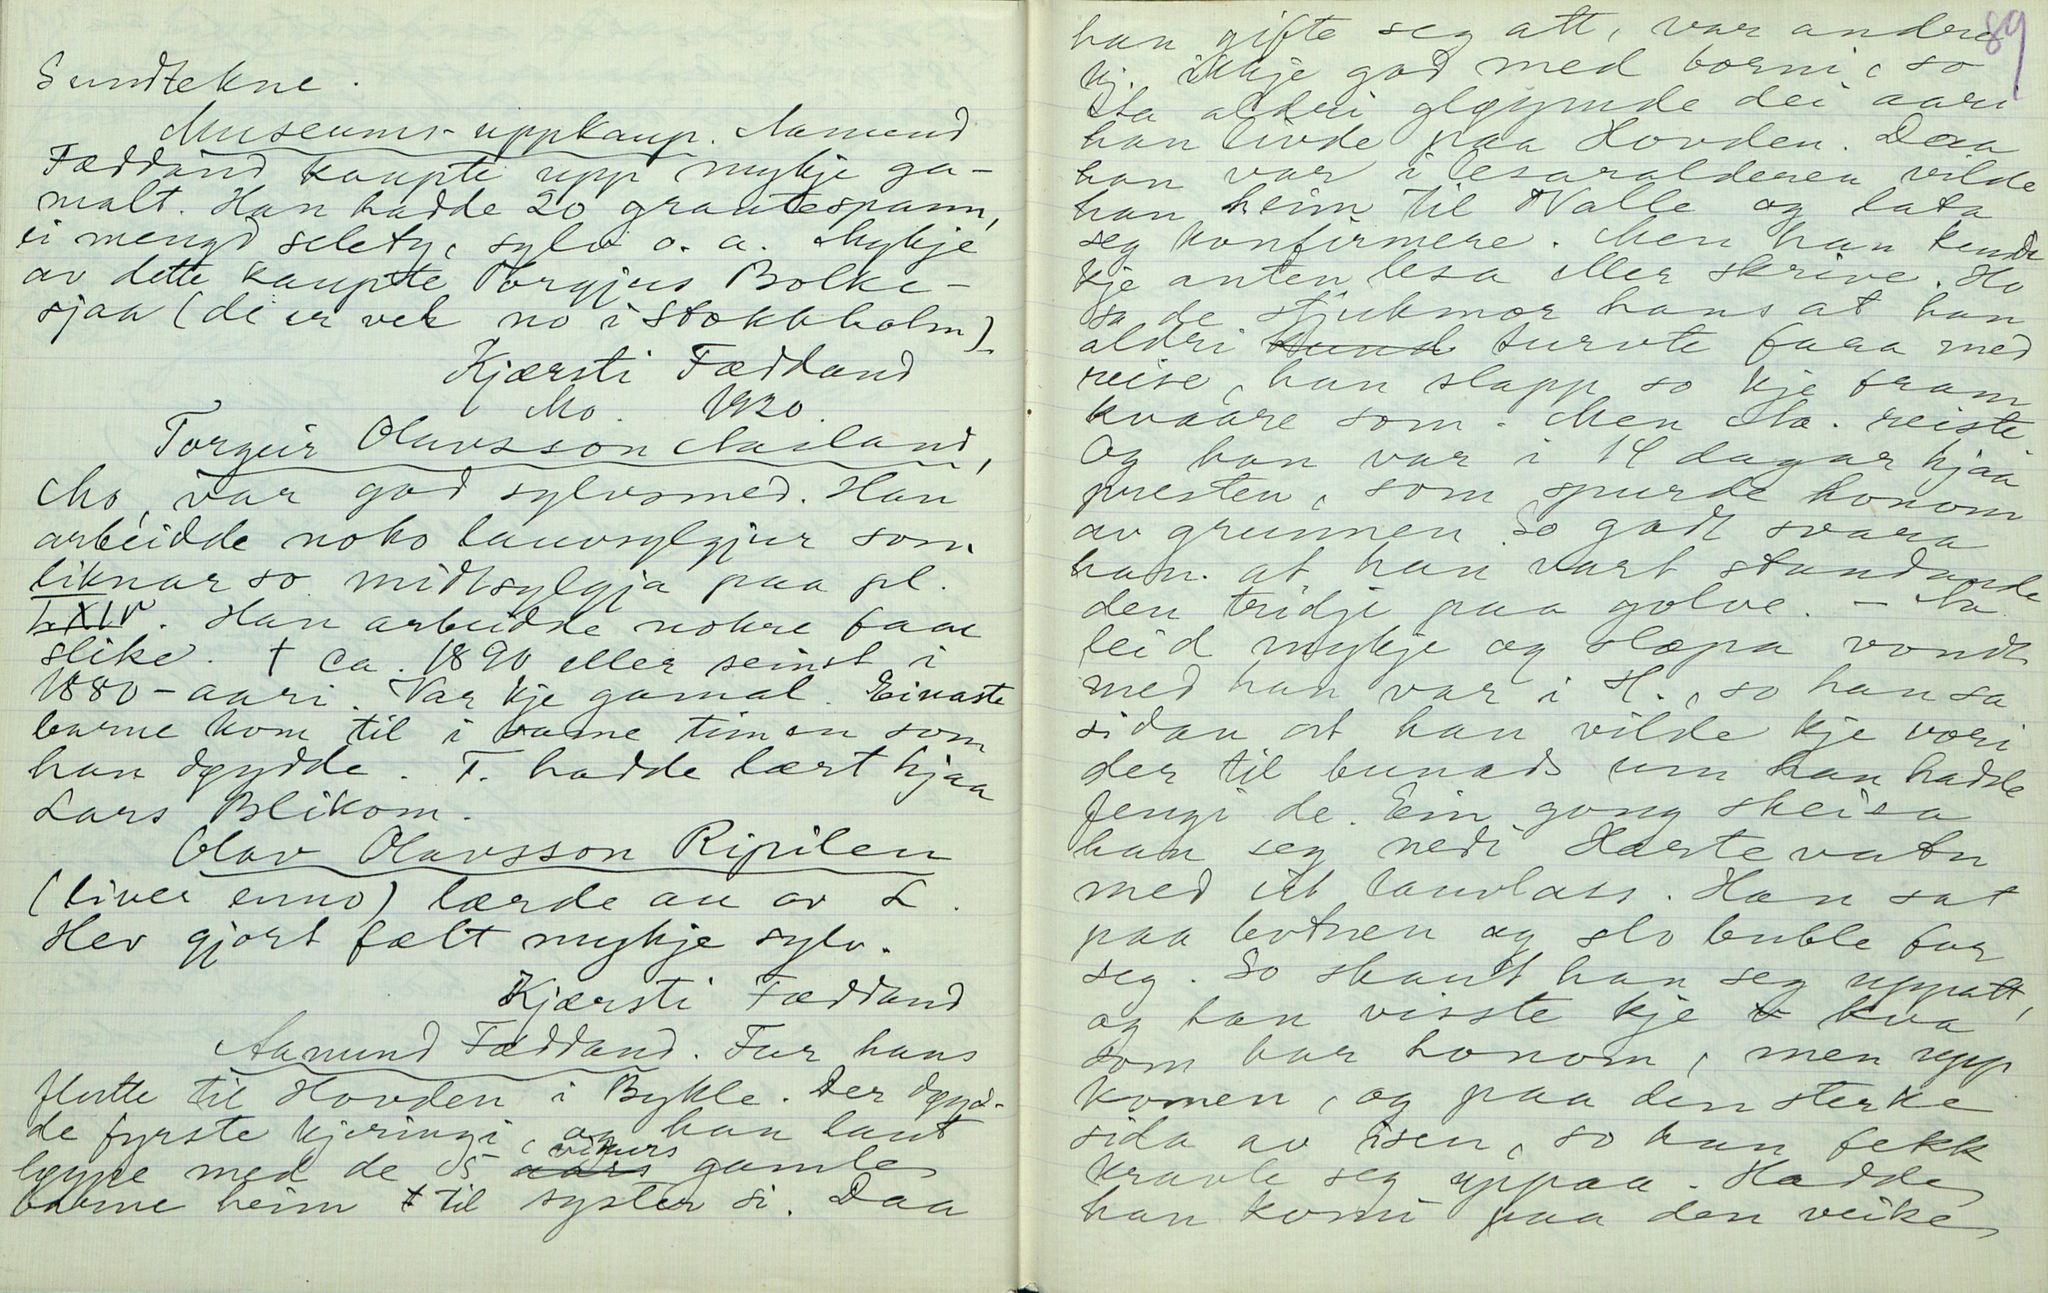 Sundtekne.
Museums-uppkaup. Aamund
Fæddand kaupte upp mykje ga-
malt. Han hadde 20 grautespann,
ei mengd selety, sylv o. a. Mykje
av dette kaupte Torgjus Bolke-
sjaa (de er vek no i Stokkholm).
Kjærsti Fæddand
Mo. 1920.
Torgeir Olavsson Aasland,
Mo, var god sylvsmed. Han
arbeidde noko lauvsylgjur som
liknar so midtsylgja paa pl.
LXIV. Han arbeidde nokre faae
slike. † ca. 1890 eller seinst i
1880-aari. Var kje gamal. Einaste
barne kom til i same timen som
han døydde. T. hadde lært hjaa
Lars Blikom.
Olav Olavsson Ripilen
(liver enno) lærde au av L.
Hev gjort fælt mykje sylv.
Kjærsti Fæddand
Aamund Fæddand. Far hans
flutte til Hovden i Bykle. Der døyd-
de fyrste kjeringi, og han laut
vikurs
løype med de 5 aars gamle
barne heim t til syster si. Daa
89
han gifte seg att, var andre
kj. ikkje god med borni, so
Aa aldri gløymde dei aari
han livde paa Hovden. Daa
han var i lesaralderen vilde
han heim til Valle og lata
seg konfirmere. Men han kunde
kje anten lesa eller skrive. Ho
sa de stjukmor hans at han
aldri kund turvte fara med
reise, han slapp so kje fram
kvaare som. Men Aa. reiste
Og han var i 14 dagar hjaa
presten, som spurde honom
av grunnen. So godt svara
han at han vart standande
den tridje paa golve. – Aa
leid mykje og slæpa vondt
med han var i H., so han sa
sidan at han vilde kje vori
der til bunads um han hadde
fengi de. Ein gong skeisa
han seg nedi Hartevatn
med eit lauvlass. Han sat
paa botnen og slo buble for
seg. So skaut han seg uppatt,
og han visste kje v kva
som bar honom, men upp
komen, og paa den sterke
sida av isen, so han fekk
kravle seg uppaa. Hadde
han komi paa den veike